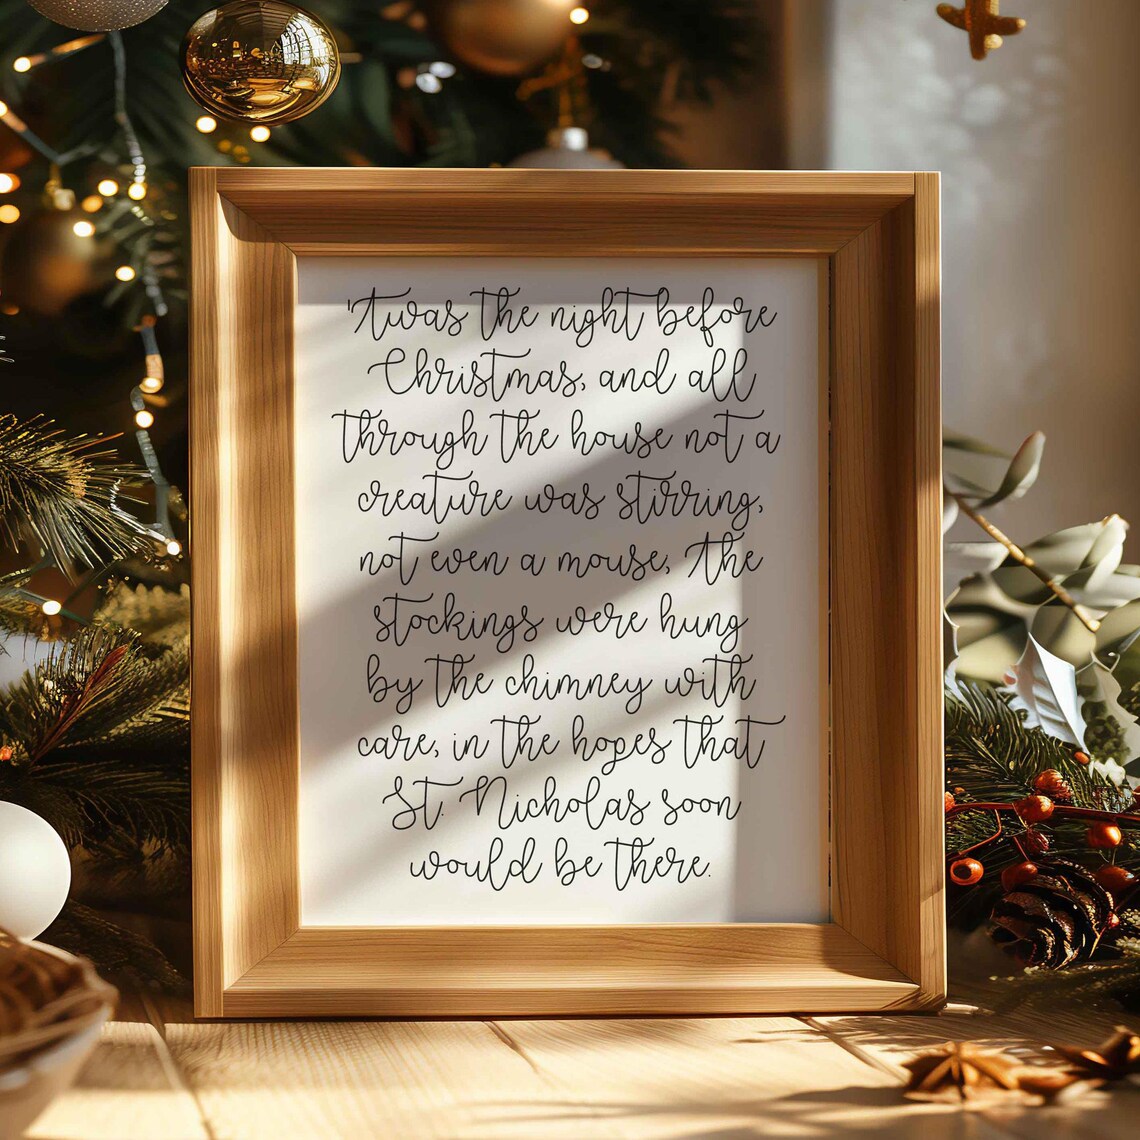 'Twas the night before
Christmas, and all
through the house not a
creature was stirring,
not even a mouse, the
stockings were hung
by the chimney with
care, in the hopes that
St. Nicholas soon
would be there.